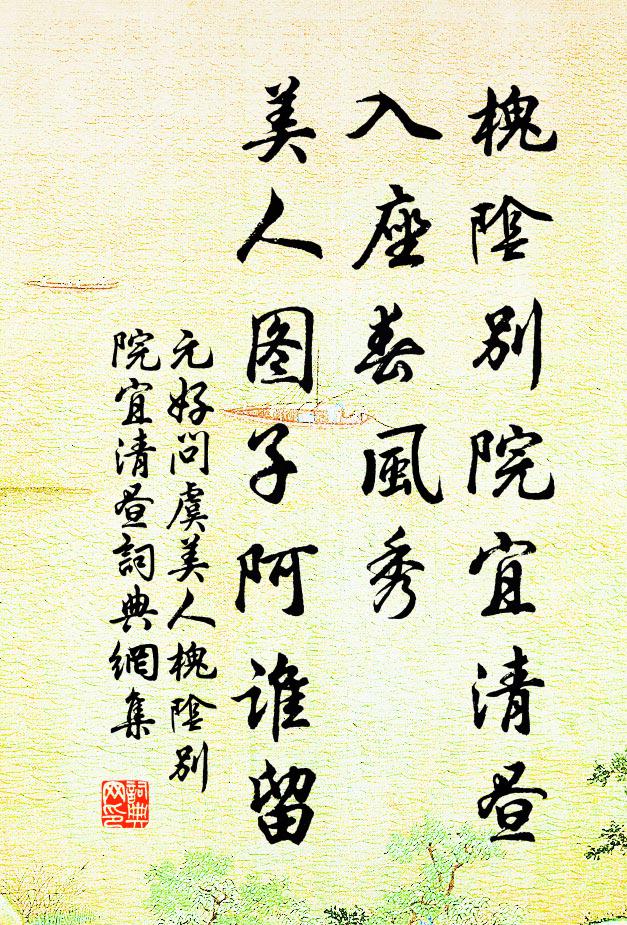 槐陰别院宜清昼
入座春風秀
美人图子阿谁留
元好问虞美人槐陰别
院宜清昼詞典網集
詞典
网印